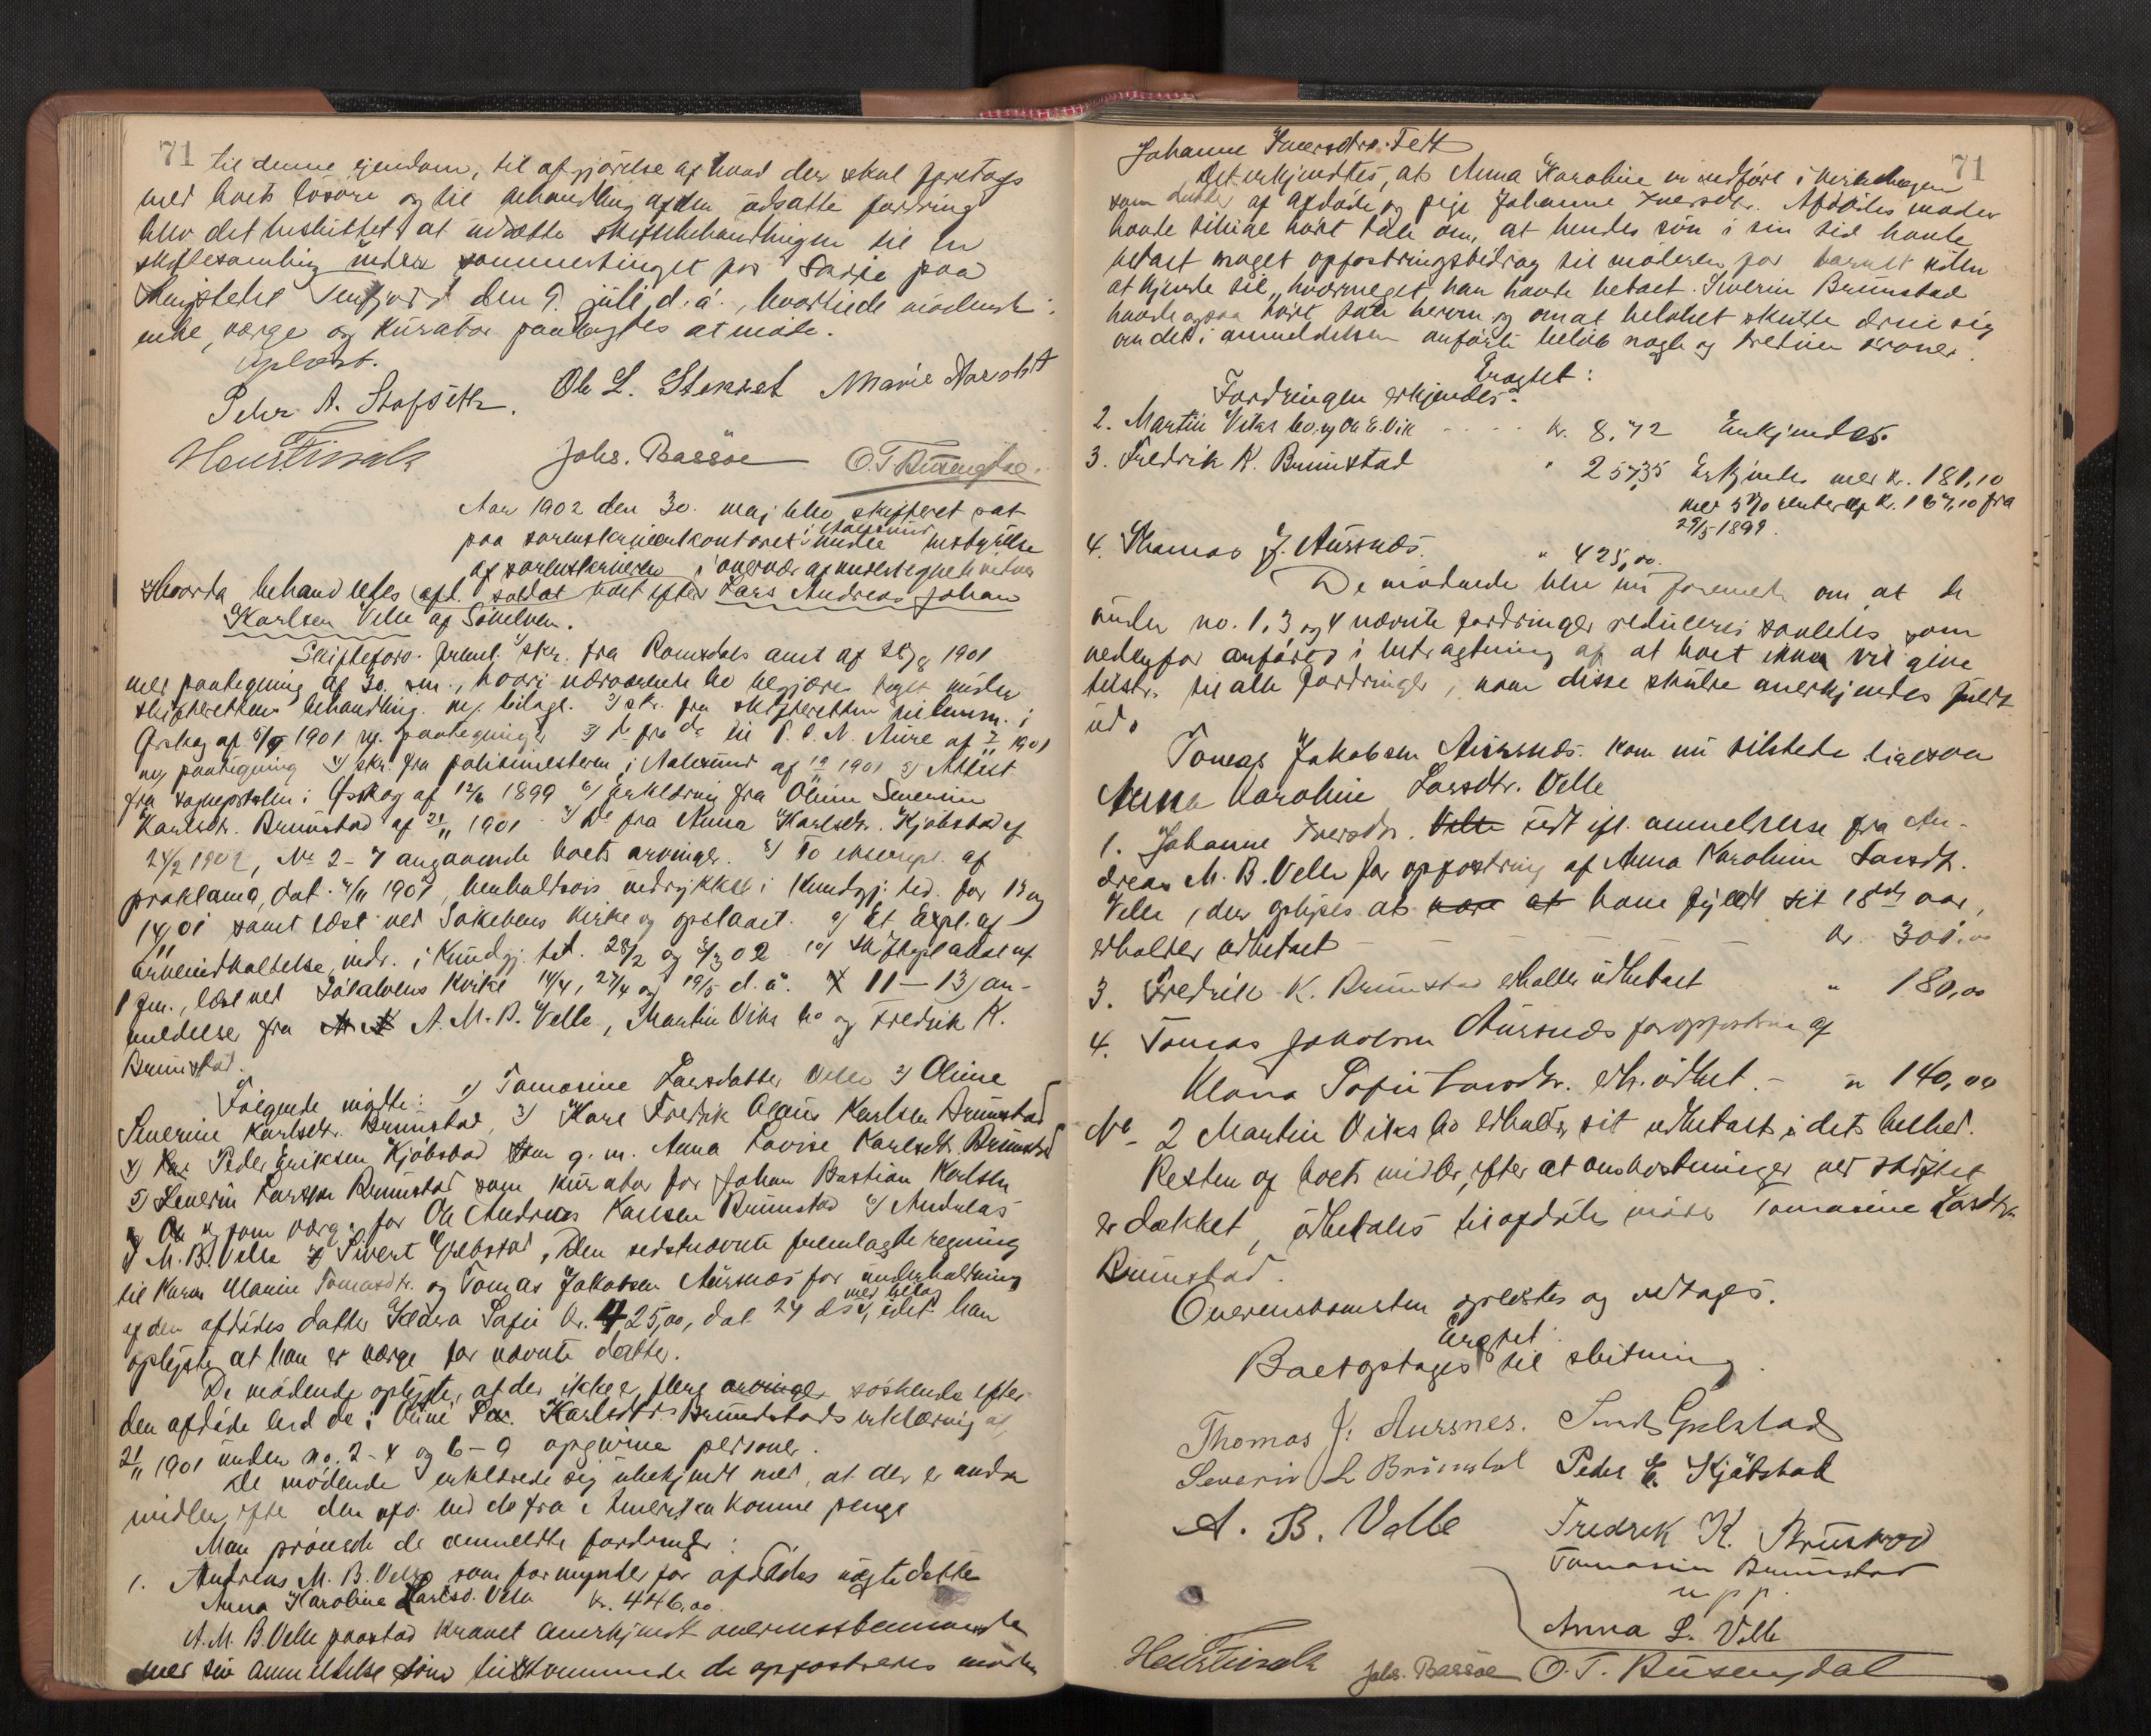 71
til denne eiendom, til afgjörelse af hvad der skal foretages
med boets lösöre og til behandling af den udsatte fordring
blev det besluttet at udsætte skiftebehandlingen til en
skiftesamling under sommertinget for paa
den 9. juli d. a., hvortil de mödende:
enke, værge og kurator paalagdes at möde.
Oplæst.
Pehr A. Stafseth. Ole L. Stokset Marie
Johs. Bassöe O. T. Rusengdal.
Aar 1902 den 30. maj blev skifteret sat
paa sorenskriverkontoret i Aalesund under bestyrelse
af sorenskriveren i overvær af undertegnede vidner
Hvorda behandledes afd. soldat boet efter Lars Andreas Johan
Karlsen Velle af Sökelven.
Skifteforv. freml. 1) skr. fra Romsdals amt af 28/8 1901
med paategning af 30. s.m., hvori nærværende bo begjæres taget under
skifterettens behandling. m. bilage. 2) skr. fra skifteretten til lensm. i
Örskog af 5/9 1901 m. paategninger 3) do fra do til P. O. N. Aure af 1901
m. paategning 4) skr. fra politimesteren i Aalesund af 1901 5) Attest
fra sognepresten i Örskog af 12/6 1899 6) Erklæring fra Oline Severine
Karlsdtr. Brunstad af 21/11 1901 7) Do fra Anna Karlsdtr. Kjöbstad af
24/2 1902, No 2-7 angaaende boets arvinger. 8) To exempl. af
proklama, dat. 4/11 1901, henholdsvis indrykket i Kundgj. tid. for 13 og
14/11 01 samt læst ved Sökelvens kirke og opslaaet. 9) Et Expl. af
arveindkaldelse, indr. i Kundgj. tid. 28/2 og 4/3 02 10) Skifteplakat af
1 f.m., læst ved Sökelvens kirke 14/4, 27/4 og 19/5 d. a. 11-13) an-
meldelser fra A. M. B. Velle, Martin Viks bo og Fredrik K.
Brunstad.
Fölgende mødte: 1) Tomasine Larsdatter Velle 2) Oline
Severine Karlsdtr. Brunstad, 3) Karl Fredrik Olaus Karlsen Brunstad
4) Peder Eriksen Kjöbstad g. m. Anna Lovise Karlsdtr. Brunstad
5) Severin Larssen Brunstad som kurator for Johan Bastian Karlsen
og som værge for Ole Andreas Karlsen Brunstad 6) Andreas
M. B. Velle 7) Sivert Gjelstad, Den sidstnævnte fremlagde regning
til Karen Marie Tomasdtr. og Tomas Jakobsen Aursnes for underholdning
af den afdödes datter Klara Sofie Kr. 425,00, dat 24 ds. med bilag, idet han
oplyste, at han er værge for nævnte datter.
De mödende oplyste, at der ikke er flere arvinger söskende efter
den afdöde end de i Oline Sev. Karlsdtr. Brunstads erklæring af
21/11 1901 under no. 2-4 og 6-9 opgivne personer.
De mödende erklærede sig ubekjendt med, at der er andre
midler efter den afd. end de fra i Amerika komne penge
Man prövede de anmeldte fordringer:
1. Andreas M. B. Velle som formynder for afdödes uægte datter
Anna Karoline Larsd. Velle Kr. 446,00
A. M. B. Velle paastod kravet anerkjendt overensstemmende
med sin anmeldelse som tilkommende de opfostredes moder
71
Johanne Iversdtr. Fedt
Det erkjendtes, at Anna Karoline er indfört i kirkebogen
som datter af afdöde og pige Johanne Iversdtr. Afdödes moder
havde tillige hört tale om, at hendes sön i sin tid havde
betalt noget opfostringsbidrag til moderen for barnet uden
at kjende til, hvormeget han havde betalt. Severin Brunstad
havde ogsaa hört tale herom og om at belöbet skulde dreie sig
om det i anmeldelsen anförte belöb nogle og tredive kroner.
Eragtet:
Fordringen erkjendes.
2. Martin Viks bo v. Ole E. Vik - - - - kr. 8,72 Erkjendes.
3. Fredrik K. Brunstad " 257,35 Erkjendes med kr. 181,10
med 5% renter af kr. 167,10 fra
29/5 1899.
4. Thomas J. Aursnæs. " 425,00.
De mödende blev nu forenede om, at de
under no. 1, 3 og 4 nævnte fordringer reduceres saaledes som
nedenfor anföres i betragtning af at boet ikke vil give
tilstr. til alle fordringer, naar disse skulde anerkjendes fuldt
ud.
Tomas Jakobsen Aursnæs kom nu tilstede ligesaa
Anna Karoline Larsdtr. Velle
1. Johanne Iversdtr. Velle Fedt ifl. anmeldelse fra An-
dreas M. B. Velle for opfostring af Anna Karoline Larsdtr.
Velle, der oplyses at være at have fyldt sit 18de aar,
erholder udbetalt - - - kr. 300.00
3. Fredrik K. Brunstad erholder udbetalt " 180,00
4. Tomas Jakobsen Aursnæs for opfostring af
Klara Sofie Larsdtr. erh. udbet. - " 140,00
No 2 Martin Viks bo erholder sit udbetalt i dets helhed.
Resten af boets midler, efter at omkostninger ved skiftet
er dækket, udbetales til afdödes moder Tomasine Larsdtr.
Brunstad.
Overenskomsten oplæstes og vedtages.
Eragtet:
Boet optages til slutning.
Thomas J: Aursnes. Sivert Gjelstad
Severin L Brunstad Peder E. Kjöbstad
A. B. Velle Fredrek K. Brunstad
Tomasine Brunstad
m. p. p.
Anna L. Velle
Johs. Bassöe O. T. Rusengdal